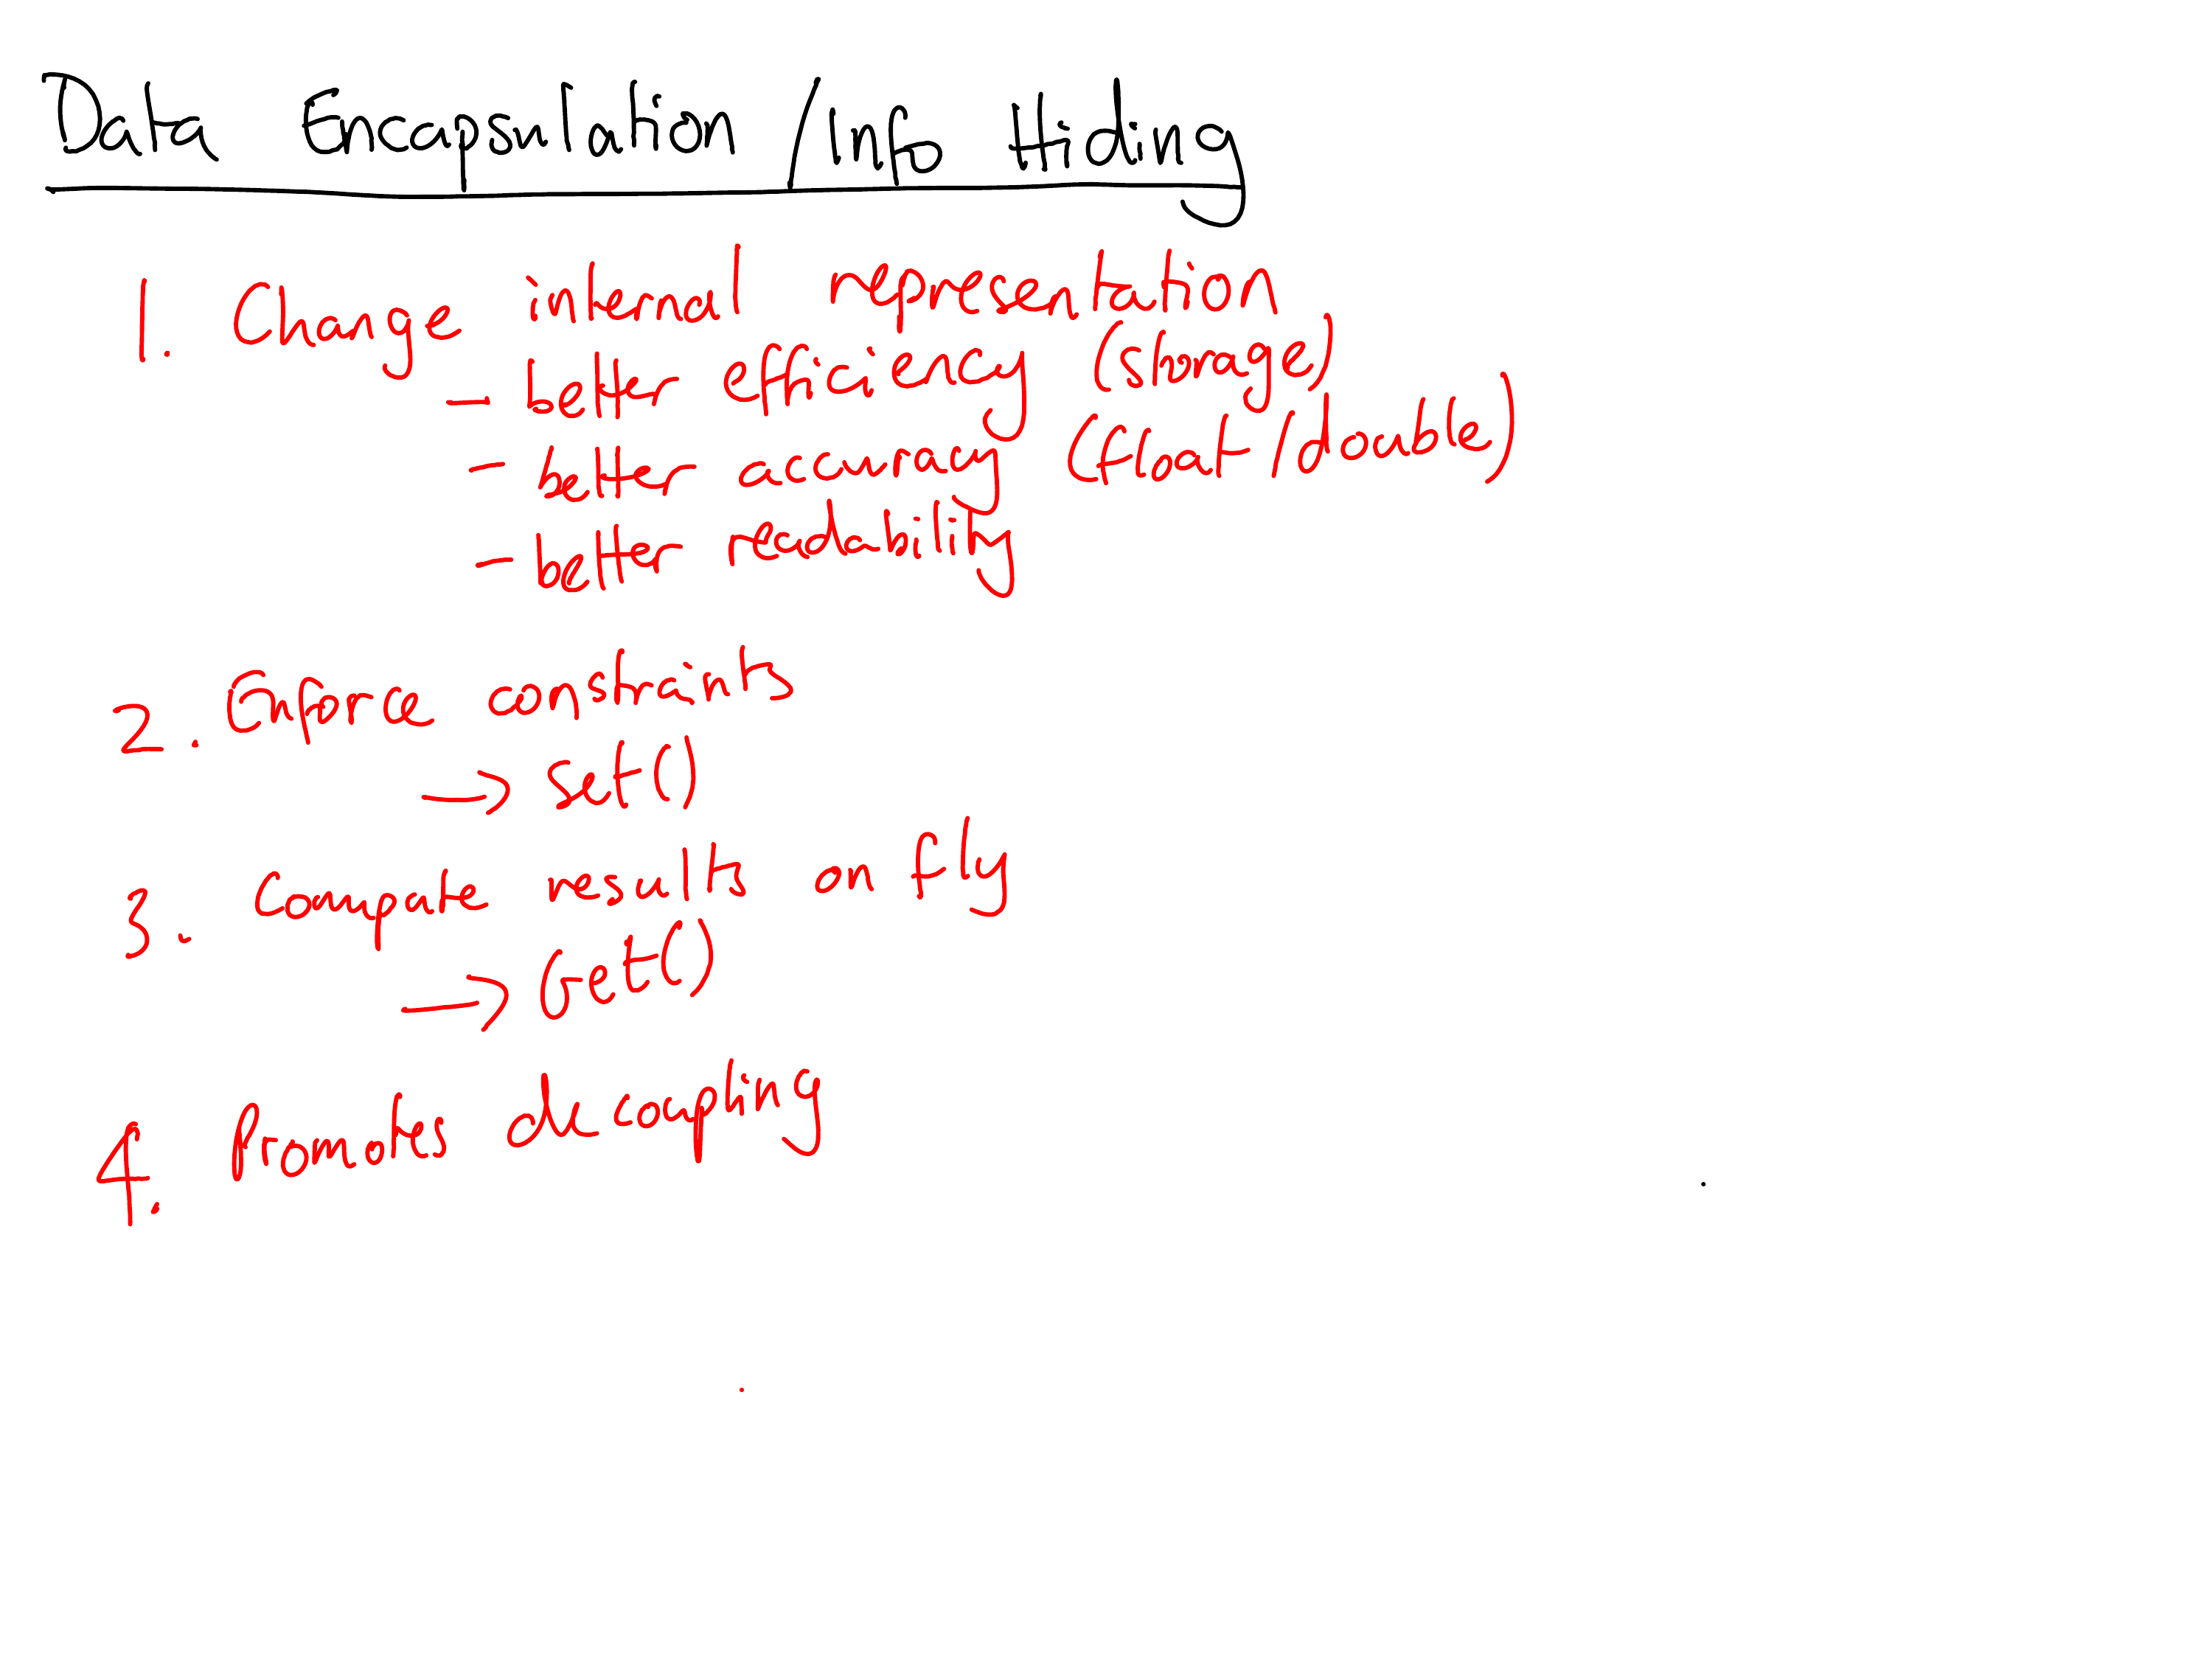 Data Encapsulation / Info Hiding
1. Change internal representation
- better efficiency (storage)
- better accuracy (float/double)
- better readability
2. Enforce constraints
→ Set()
3. Compute results on fly
→ Get()
4. Promotes decoupling